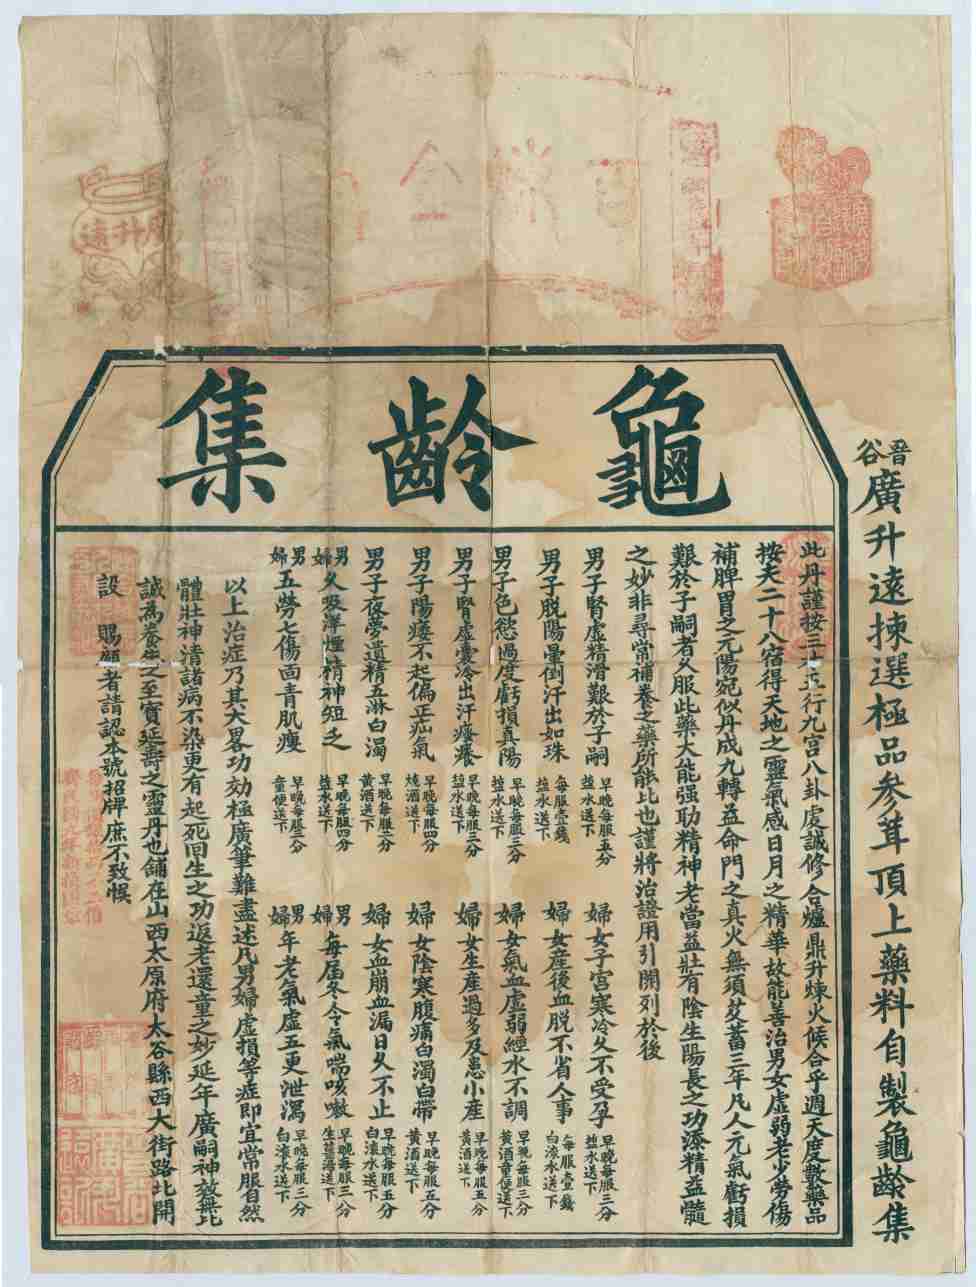 晋谷廣升遠揀選極品參茸頂上藥料自製龜齡集
龜齡集
此丹謹按三才五行九宮八卦虔誠修合爐鼎升煉火候合乎週天度數藥品
按天二十八宿得天地之靈氣感日月之精華故能善治男女虛弱老少勞傷
補脾胃之元陽宛似丹成九轉益命門之真火無須艾蓄三年凡人元氣虧損
艱於子嗣者久服此藥大能强助精神老當益壯有陰生陽長之功添精益髓
之妙非尋常補養之藥所能比也謹將治證用引開列於後
男子腎虛精滑艱於子嗣 早晚每服五分 鹽水送下
婦女子宮寒冷久不受孕 早晚每服三分 鹽水送下
男子脫陽暈倒汗出如珠 每服壹錢 鹽水送下
婦女產後血脫不省人事 每服壹錢 白滾水送下
男子色慾過度虧損真陽 早晚每服三分 鹽水送下
婦女氣血虛弱經水不調 早晚每服三分 黃酒童便送下
男子腎虛囊冷出汗瘙癢 早晚每服三分 鹽水送下
婦女生產過多及患小產 早晚每服五分 黃酒送下
男子陽痿不起偏正疝氣 早晚每服四分 燒酒送下
婦女陰寒腹痛白濁白帶 早晚每服五分 黃酒送下
男子夜夢遺精五淋白濁 早晚每服三分 黃酒送下
婦女血崩血漏日久不止 早晚每服五分 白滾水送下
男婦久吸洋煙精神短乏 早晚每服四分 鹽水送下
男婦每屆冬令氣喘咳嗽 早晚每服三分 生薑湯送下
男婦五勞七傷面青肌瘦 早晚每服三分 童便送下
男婦年老氣虛五更泄瀉 早晚每服三分 白滾水送下
以上治症乃其大畧功効極廣筆難盡述凡男婦虛損等症即宜常服自然
體壯神清諸病不染更有起死回生之功返老還童之妙延年廣嗣神效無比
誠為養生之至寶延壽之靈丹也舖在山西太原府太谷縣西大街路北開
設 賜顧者請認本號招牌庶不致悞
廣升遠